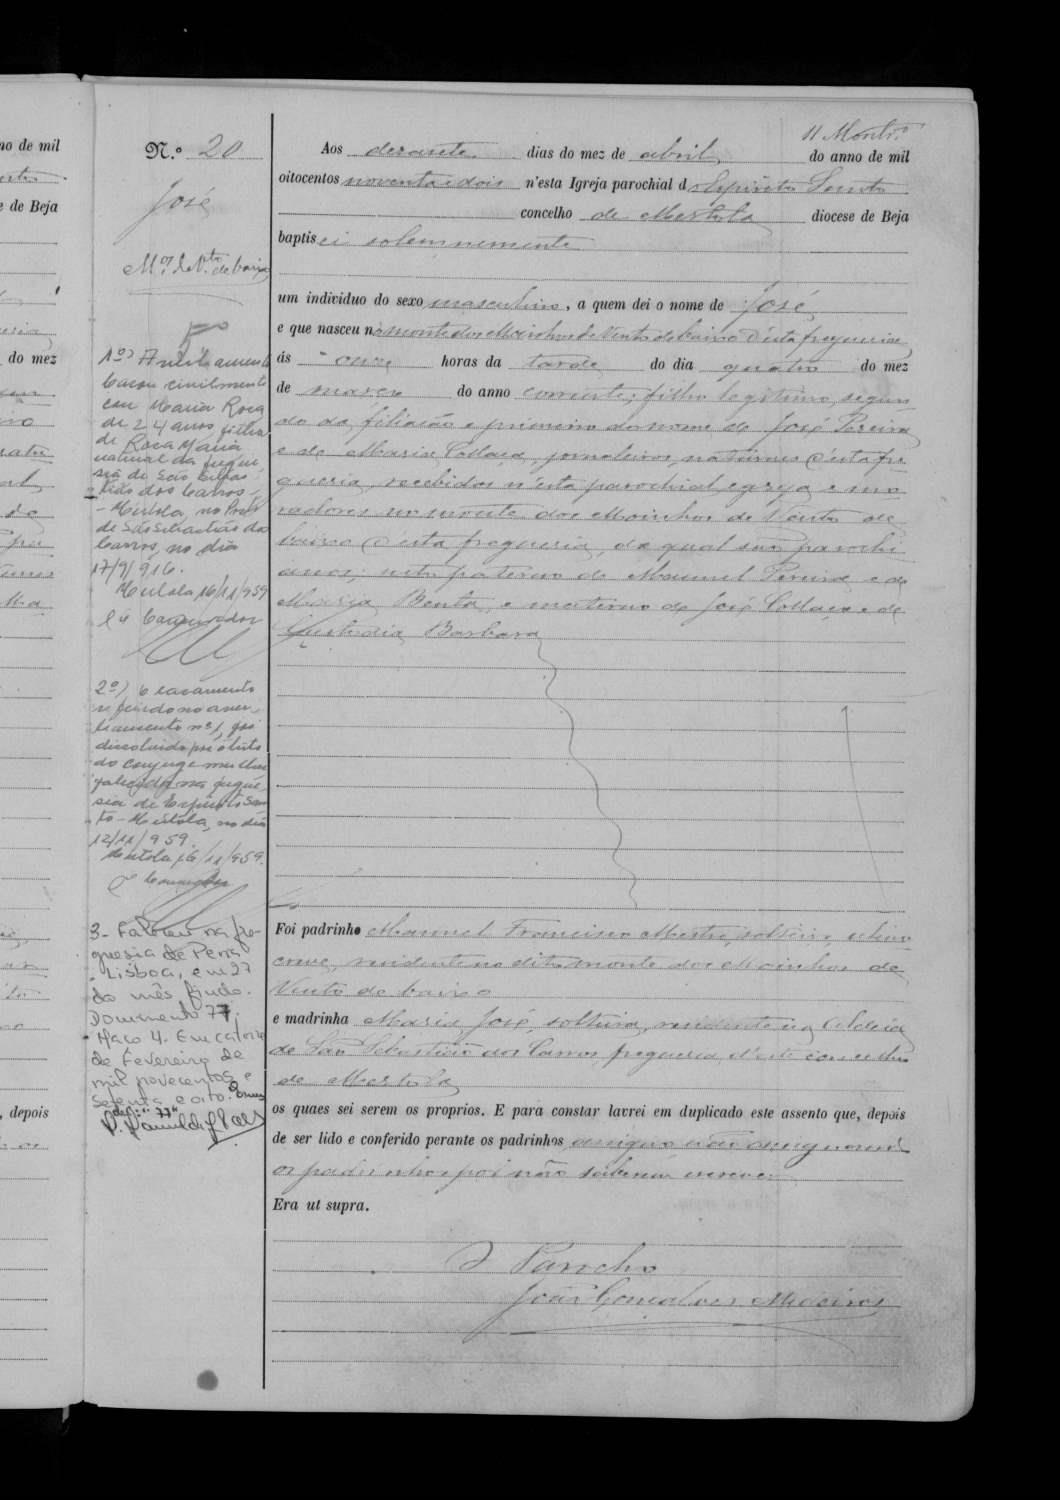 11 Montr.º
N.º 20
José
M.os de V.to de baixo
Aos desasete dias do mez de abril do anno de mil
oitocentos noventa e dois n'esta Igreja parochial d Espirito Santo
concelho de Mertola diocese de Beja
baptisei solemnemente
um individuo do sexo masculino, a quem dei o nome de José
e que nasceu no monte dos Moinhos de Vento de baixo d'esta freguesia
ás onze horas da tarde do dia quatro do mez
de março do anno corrente; filho legitimo, segun
do da filiação e primeiro do nome de José Pereira
e de Maria Collaça, jornaleiros, naturaes d'esta fre
guesia, recebidos n'esta parochial egreja e mo
radores no monte dos Moinhos de Vento de
baixo d'esta freguesia, da qual são parochi
anos; neto paterno de Manuel Pereira e de
Maria Benta, e materno de José Collaça e de
Custodia Barbara
Foi padrinho Manuel Francisco Mestre, solteiro,
residente no dito monte dos Moinhos de
Vento de baixo
e madrinha Maria José, solteira, residente na Aldeia
de São Sebastião dos Carros, freguesia d'este concelho
de Mertola
os quaes sei serem os proprios. E para constar lavrei em duplicado este assento que, depois
de ser lido e conferido perante os padrinhos assigno e não assignaram
os padrinhos por não saberem escrever
Era ut supra.
O Parocho
João Gonçalves Medeiros
1º) Antilamente
casou civilmente
com Maria Rosa
de 24 anos, filha
de Rosa Maria
natural da fregue
sia de São Sebas
tião dos Carros
- Mértola, no Posto
de São Sebastião dos
Carros, no dia
17/9/916.
Mértola 16/11/959
O Conservador
2º) O casamento
referido no aver
bamento nº 1, foi
dissolvido por óbito
do conjuge mulher
falecida na fregue
sia de Espírito San
to - Mértola, no dia
12/11/959.
Mértola 16/11/959.
O Conservador
3- Faleceu na fre-
guesia de Pena
- Lisboa, em 27
do mês findo.
Documento 77.
Maço 4. Em catorze
de Fevereiro de
mil novecentos e
setenta e oito.